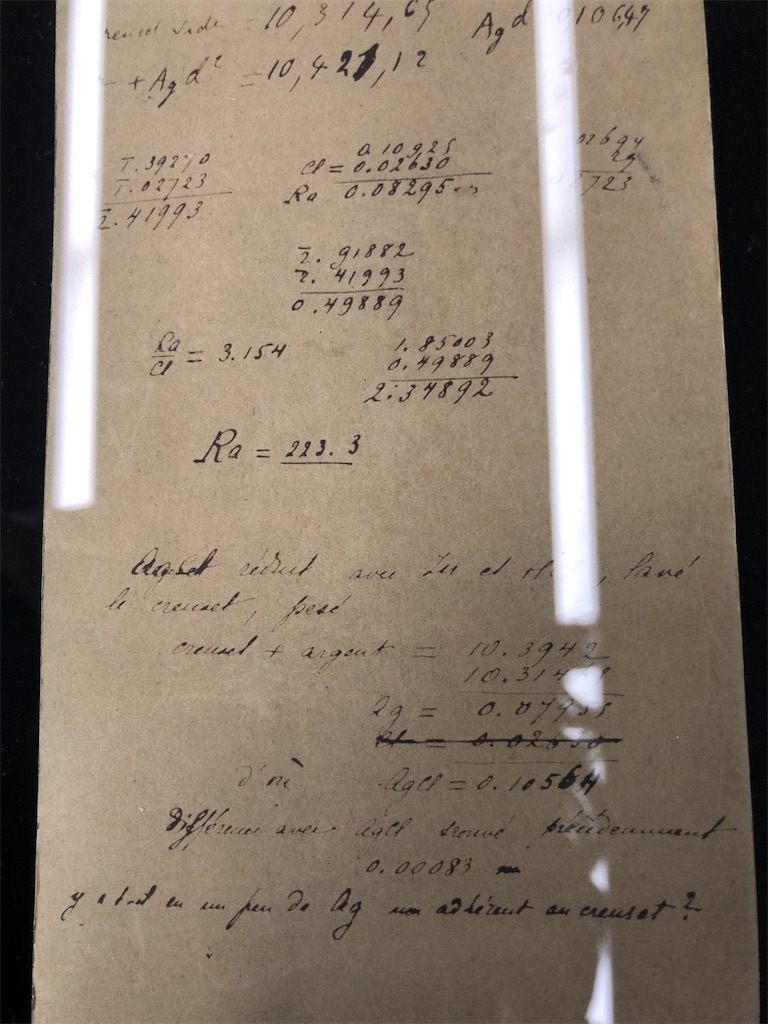 creuset vide = 10,314,65 AgCl 0,10647
+ AgCl = 10,421,12
1̄.39270
1̄.02723
2̄.41993
0.10925
Cl = 0.02630
Ra 0.08295
02694
29
723
2̄.91882
2̄.41993
0.49889
Ra/Cl = 3.154
1.85003
0.49889
2.34892
Ra = 223.3
AgCl réduit avec Zn et, lavé
le creuset, pesé
creuset + argent = 10.3942
10.314
Ag = 0.079
Cl = 0.02630
d'où AgCl = 0.10564
différence avec AgCl trouvé précédemment
0.00083
y a t-il eu un peu de Ag adhérent au creuset ?